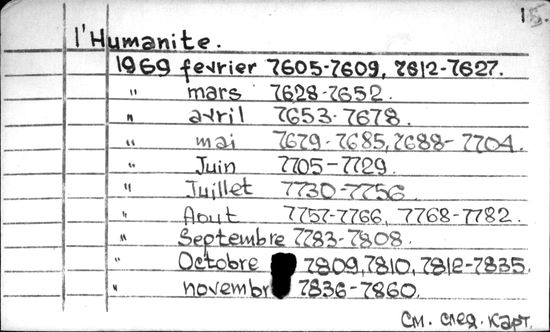 15.
l'Humanite.
1969 fevrier 7605-7609, 7612-7627.
" mars 7628-7652.
" avril 7653-7678.
" mai 7679-7685, 7688-7704.
" Juin 7705-7729.
" Juillet 7730-7756
" Aout 7757-7766, 7768-7782.
" Septembre 7783-7808.
" Octobre 7809, 7810, 7812-7835.
" novembr 7836-7860.
См. след. карт.